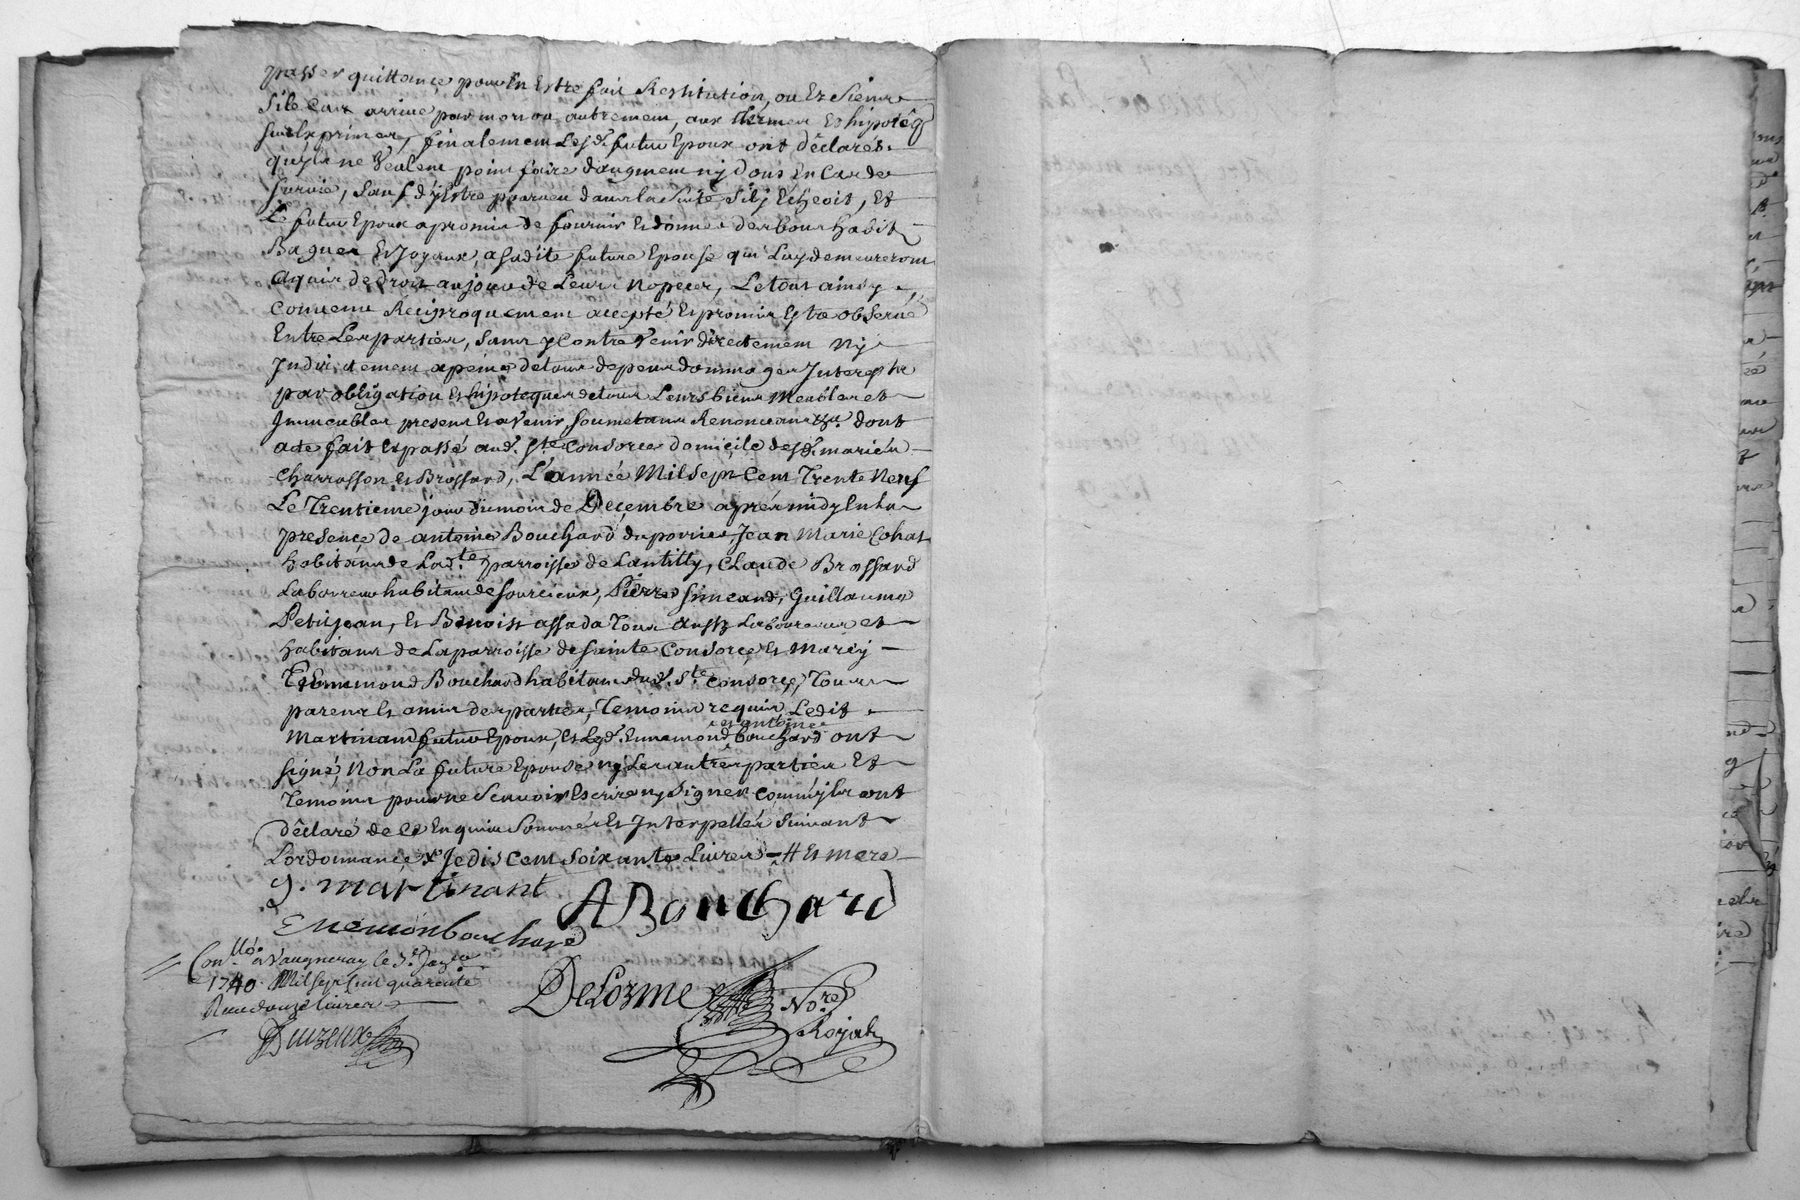 passer quittance pour En Estre fait Restitution, ou Es Siens
Sile Cas arrive par mort ou autrement, aux termes Es hipoteq
susexprimés, finalement Lesd. futur Epoux ont déclarés
quyls ne Veulent point faire daugment ny dons En Cas de
survie, Sauf d'y Estre pourveu dans la Suite Sil y Echeoit, Et
Le futur Epoux a promis de fournir Es donner des bons habit
Bagues Es Joyaux, a sadite future Epouse qui Luy demeureront
Aquis de droit au jour de Leurs Nopces, Le tout ainsy
Convenu Réciproquement accepté Es promis Estre observé
Entre Les parties, Sans y Contrevenir directement Ny
Indirectement a peine de tous depens dommages Interests
par obligation Es hipoteques de tous Leurs biens Meubles et
Immeubles presens Es avenir, Soumetans Renonceans &a. dont
acte fait Es passé aud. Ste Consorce domicile desd. mariés
Charrasson Es Brossard, L'année Mil Sept Cent Trente Neuf
Le Trentieme jour du mois de Decembre aprés midy En la
presence de antoine Bouchard du poirier Jean Marie Cohas
habitans de Ladte parroisse de Lantilly, Claude Brossard
Laboureur habitant de Sourcieux, Pierre Simeand, Guillaume
Petitjean, Es Benoist assada Tous Aussy Laboureurs et
habitans de La parroisse de Sainte Consorce Es Marcy
Es Ennemond Bouchard habitant dud. Ste Consorce, Tous
parens Es amis des parties, Temoins requis Ledit
Martinand futur Epoux, Es Led. Ennemond es antoine Bouchard ont
signé, Non La future Epouse ny Les autres parties Et
Temoins pour ne Scavoir Escrire ny Signer Comm'yls ont
déclaré de Ce Enquis Sommés Es Interpellés Suivant
Lordonnance x Je dis Cent Soixante Livres # Es mere
g. martinant
A Bouchard
Enemon bouchard
Conllé. a Vaugneray le 3e Janer
1740 Mil Sept Cent quarente
Reçu douze livres
DeLorme Nore
Royal